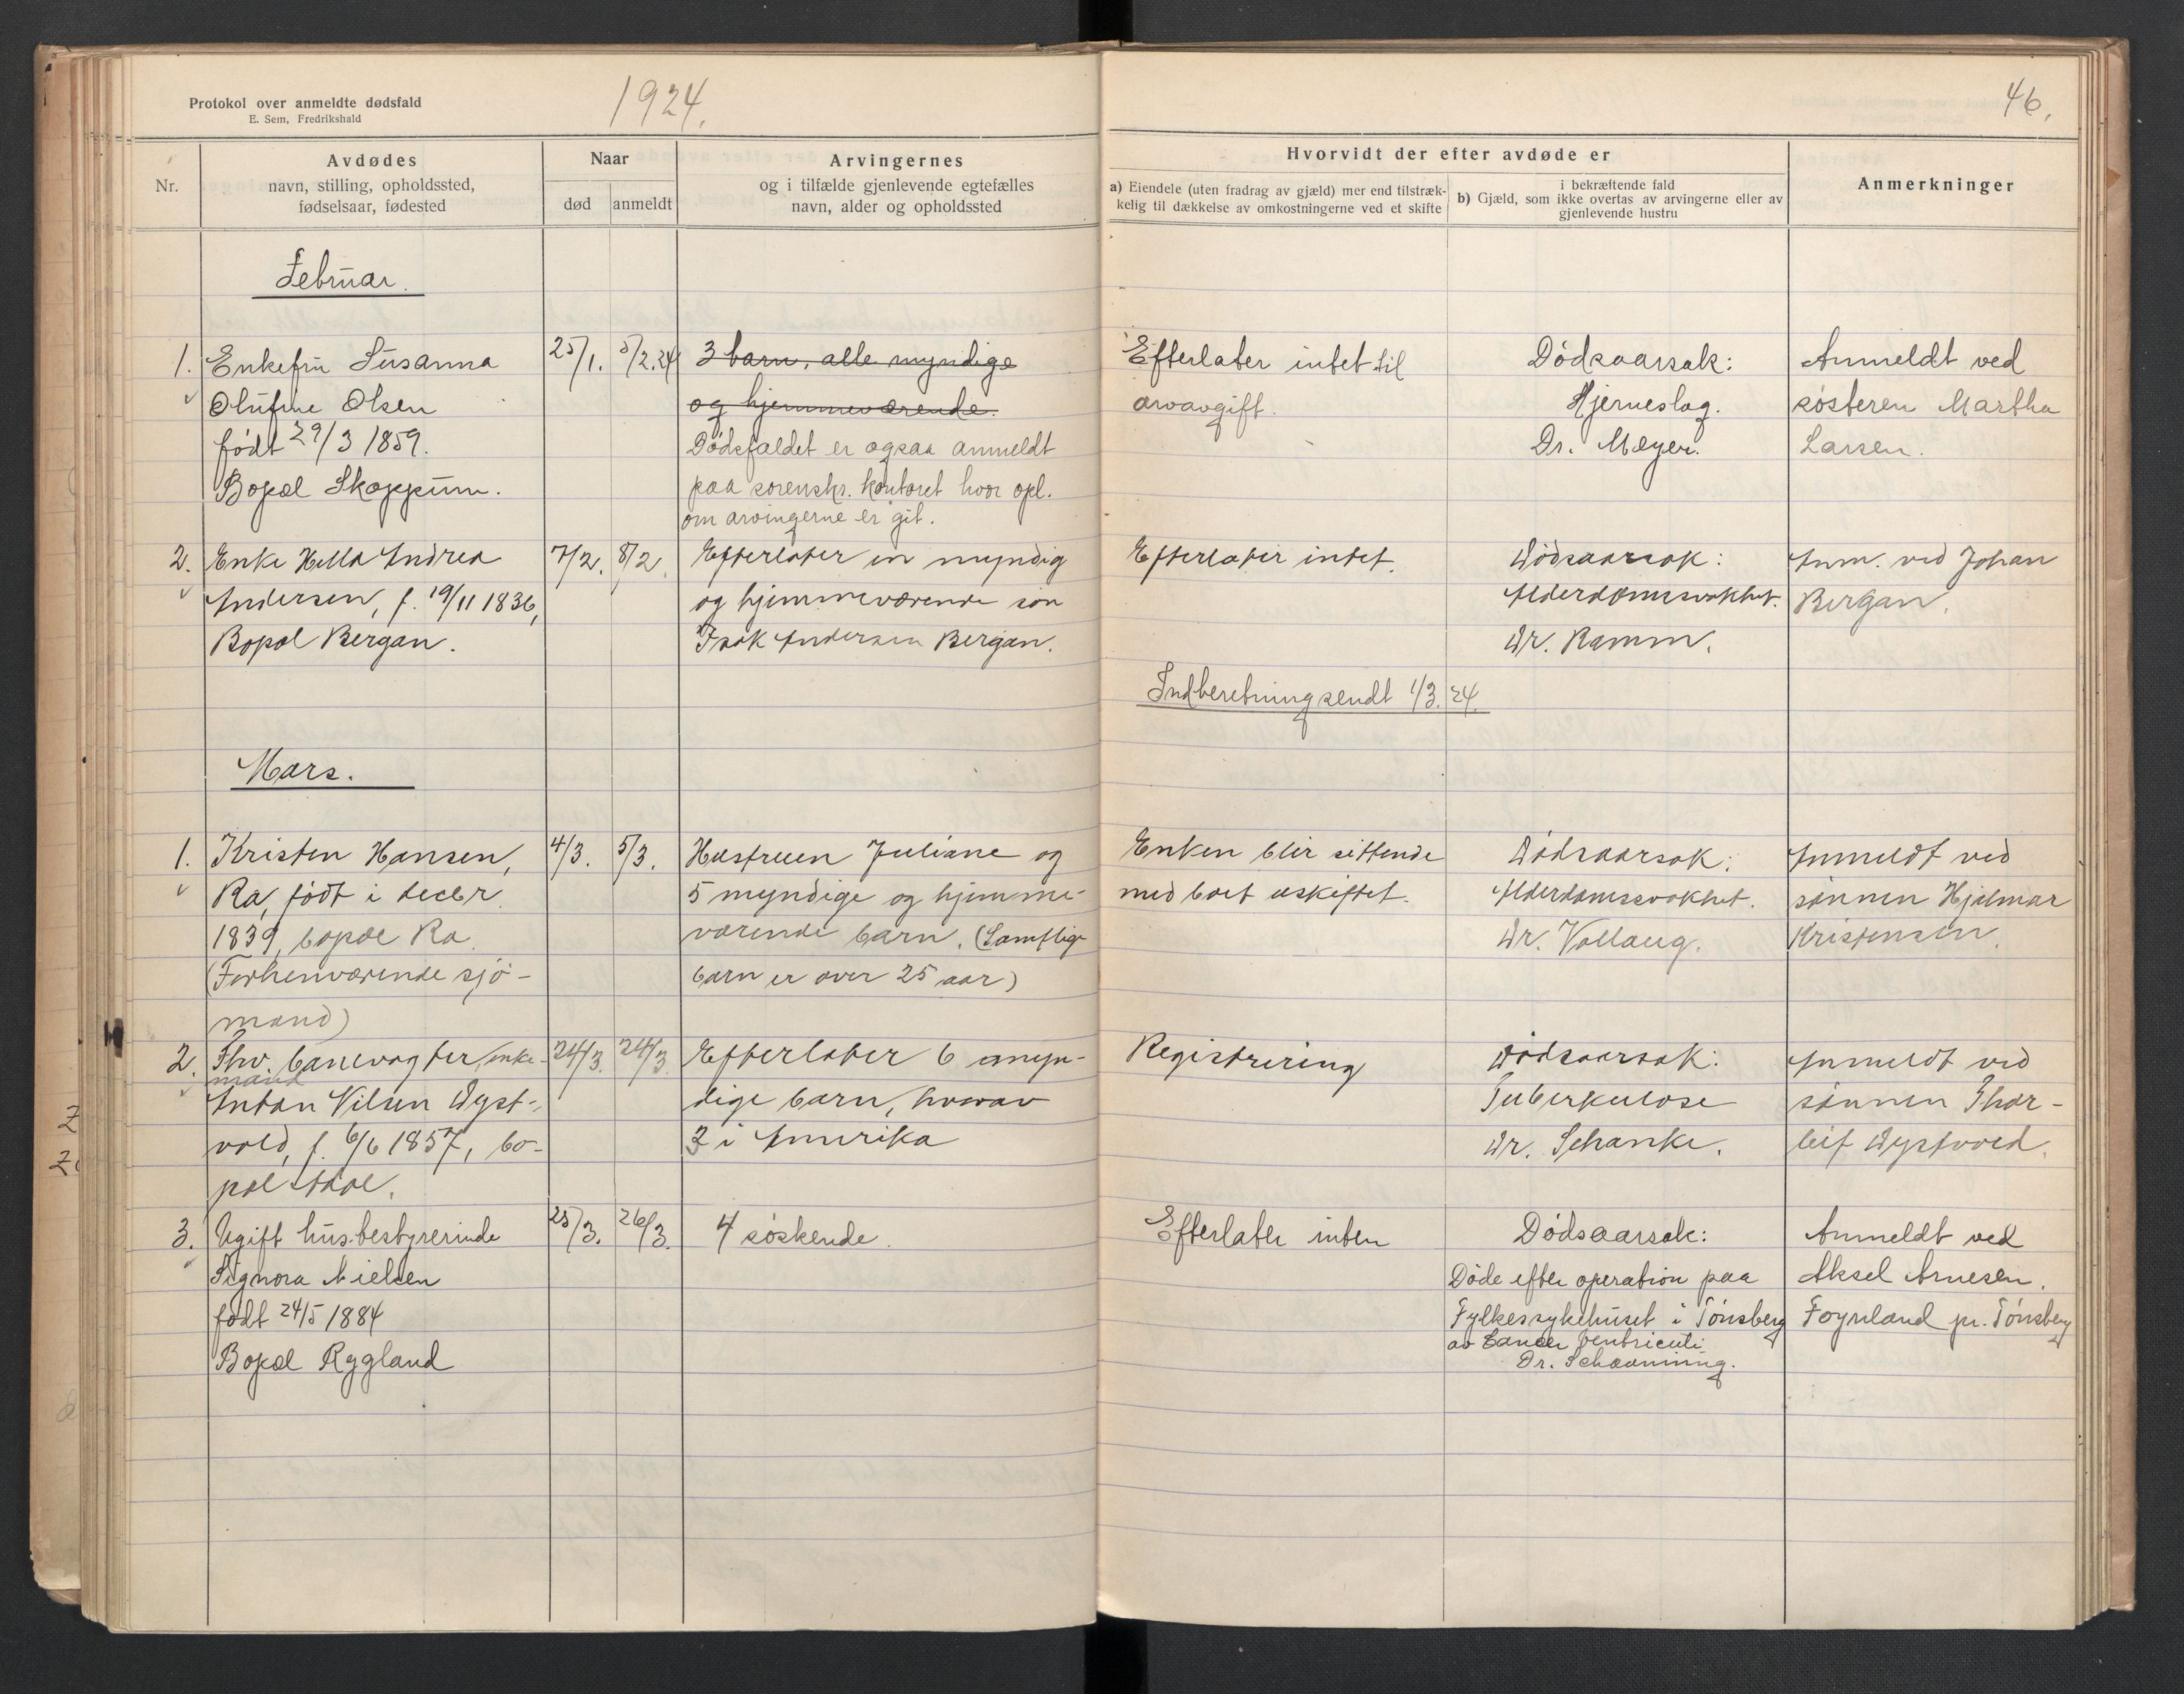 Protokol over anmeldte dødsfald
E. Sem, Fredrikshald
1924.
46.
Nr.
Avdødes
navn, stilling, opholdssted,
fødselsaar, fødested
Naar
død
anmeldt
Arvingernes
og i tilfælde gjenlevende egtefælles
navn, alder og opholdssted
Hvorvidt der efter avdøde er
a) Eiendele (uten fradrag av gjæld) mer end tilstræk-
kelig til dækkelse av omkostningerne ved et skifte
i bekræftende fald
b) Gjæld, som ikke overtas av arvingerne eller av
gjenlevende hustru
Anmerkninger
Februar.
1. Enkefru Susanna
Olufine Olsen
født 29/3 1859.
Bopæl Skoppum.
25/1.
5/2.24
3 barn, alle myndige
og hjemmeværende.
Dødsfaldet er ogsaa anmeldt
paa sorenskr. kontoret hvor opl.
om arvingerne er git.
Efterlater intet til
arvavgift.
Dödsaarsak:
Hjerneslag.
Dr. Meyer.
Anmeldt ved
søsteren Martha
Larsen.
2. Enke Hella Andrea
Andersen, f. 19/11 1836,
Bopæl Bergan.
7/2.
8/2
Efterlater en myndig
og hjemmeværende søn
Isak Andersen Bergan.
Efterlater intet.
Dødsaarsak:
Alderdomssvakhet.
Dr. Ramm.
Anm. ved Johan
Bergan.
Indberetning sendt 1/3.24.
Mars.
1. Kristen Hansen,
Ra, født i decbr.
1839, bopæl Ra.
(Forhenværende sjø-
mand)
4/3.
5/3.
Hustruen Juliane og
5 myndige og hjemme-
værende barn. (Samtlige
barn er over 25 aar)
Enken blir sittende
med boet uskiftet.
Dødsaarsak:
Alderdomssvakhet.
Dr. Vollaug.
Anmeldt ved
sønnen Hjalmar
Kristensen.
2. Fhv. banevogter, enke-
mand
Anton Nilsen Dyst-
vold, f. 6/6 1857, bo-
pæl
24/3.
24/3.
Efterlater 6 myn-
dige barn, hvorav
3 i Amerika
Registrering
Dødsaarsak:
Tuberkulose
Dr. Schanke.
Anmeldt ved
sønnen Thor-
leif Dystvold.
3. Ugift husbestyrerinde
Signora Nielsen
født 24/5 1884
Bopæl Rygland
25/3.
26/3.
4 søskende.
Efterlater inten
Dødsaarsak:
Døde efter operation paa
Fylkessykehuset i Tønsberg
av Cancer ventriculi
Dr. Schaanning.
Anmeldt ved
Aksel Arnesen.
Foynland pr. Tønsberg